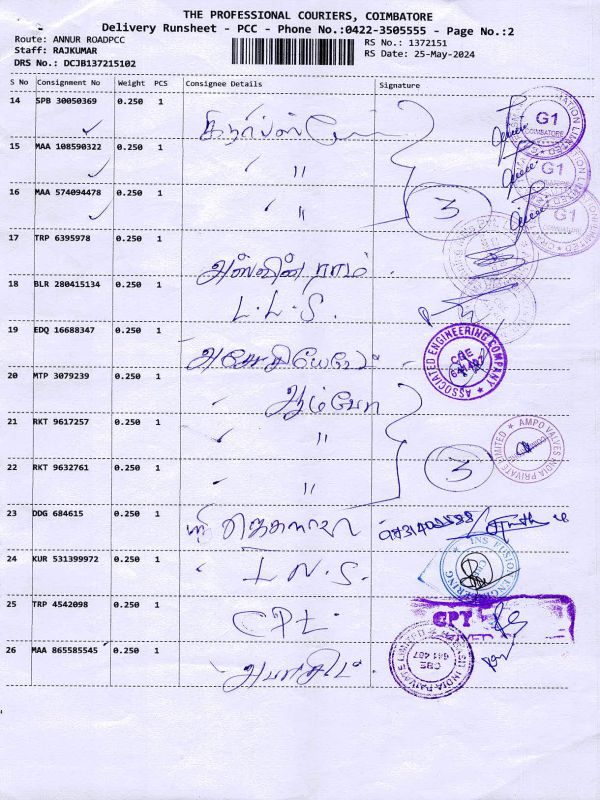 THE PROFESSIONAL COURIERS, COIMBATORE
Delivery Runsheet - PCC - Phone No.:0422-3505555 - Page No.:2
Route: ANNUR ROADPCC RS No.: 1372151
Staff: RAJKUMAR RS Date: 25-May-2024
DRS No.: DCJB137215102
S No Consignment No Weight PCS Consignee Details Signature
14 SPB 30050369 0.250 1
G1
COIMBATORE
15 MAA 108590322 0.250 1 "
G1
16 MAA 574094478 0.250 1 " 3
G1
17 TRP 6395978 0.250 1 அஸ்வின் ராம்
18 BLR 280415134 0.250 1 L.L.S.
19 EDQ 16688347 0.250 1
ASSOCIATED ENGINEERING COMPANY
CBE
641 407
20 MTP 3079239 0.250 1 ஆம்போ
21 RKT 9617257 0.250 1 "
AMPO VALVES INDIA PRIVATE LIMITED
22 RKT 9632761 0.250 1 " 3
23 DDG 684615 0.250 1
24 KUR 531399972 0.250 1 I.N.S.
INS FUSION
25 TRP 4542098 0.250 1 CPT
CPT
26 MAA 865585545 0.250 1
INDIA PRIVATE LIMITED
CBE
641 407